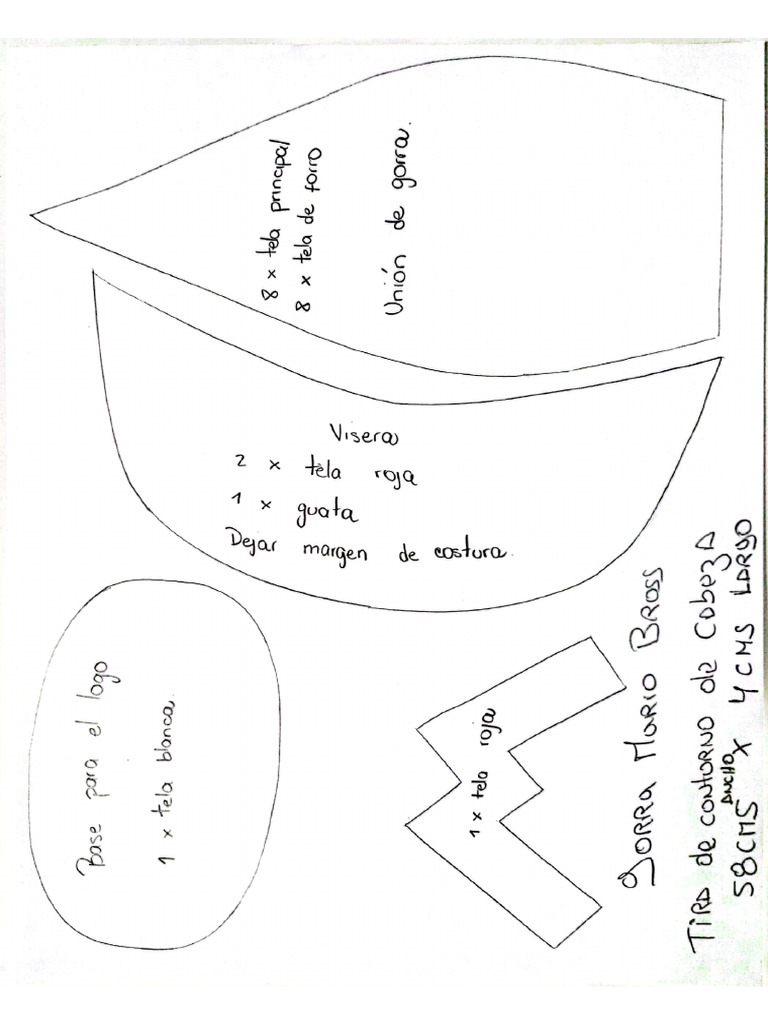 8 x tela principal
8 x tela de forro
Unión de gorra.
Visera
2 x tela roja
1 x guata
Dejar margen de costura.
Base para el logo
1 x tela blanca.
1 x tela roja
GORRA MARIO BROSS
TIRA de CONTORNO de CABEZA
58CMS ANCHO X 4 CMS LARGO